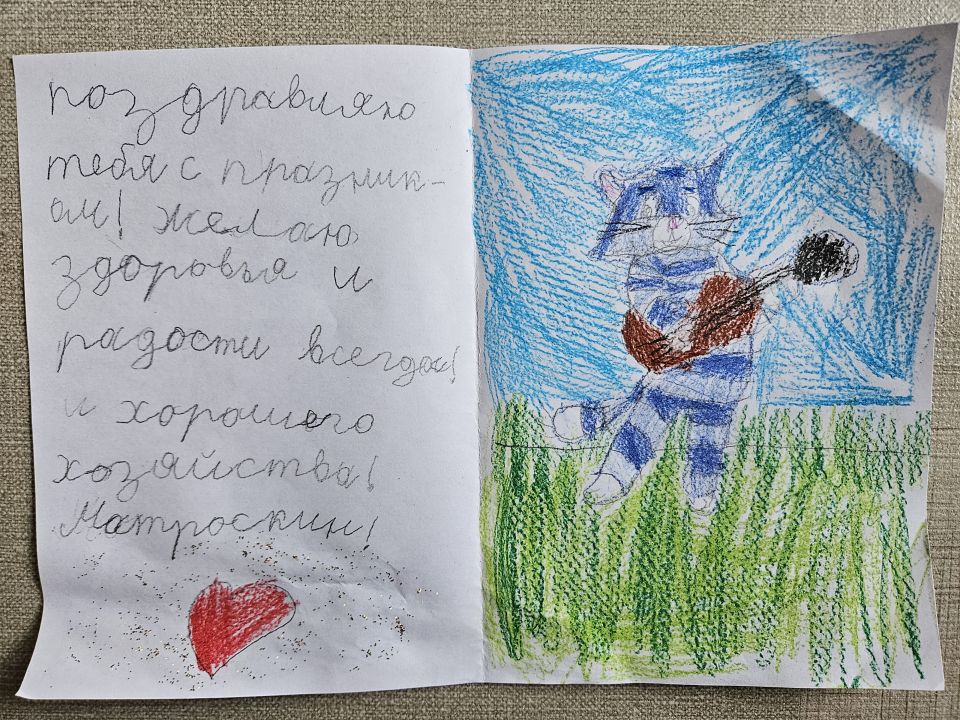 поздравляю
тебя с празник-
ом! желаю
здоровья и
радости всегда!
и хорошего
хозяйства!
Матроскин!